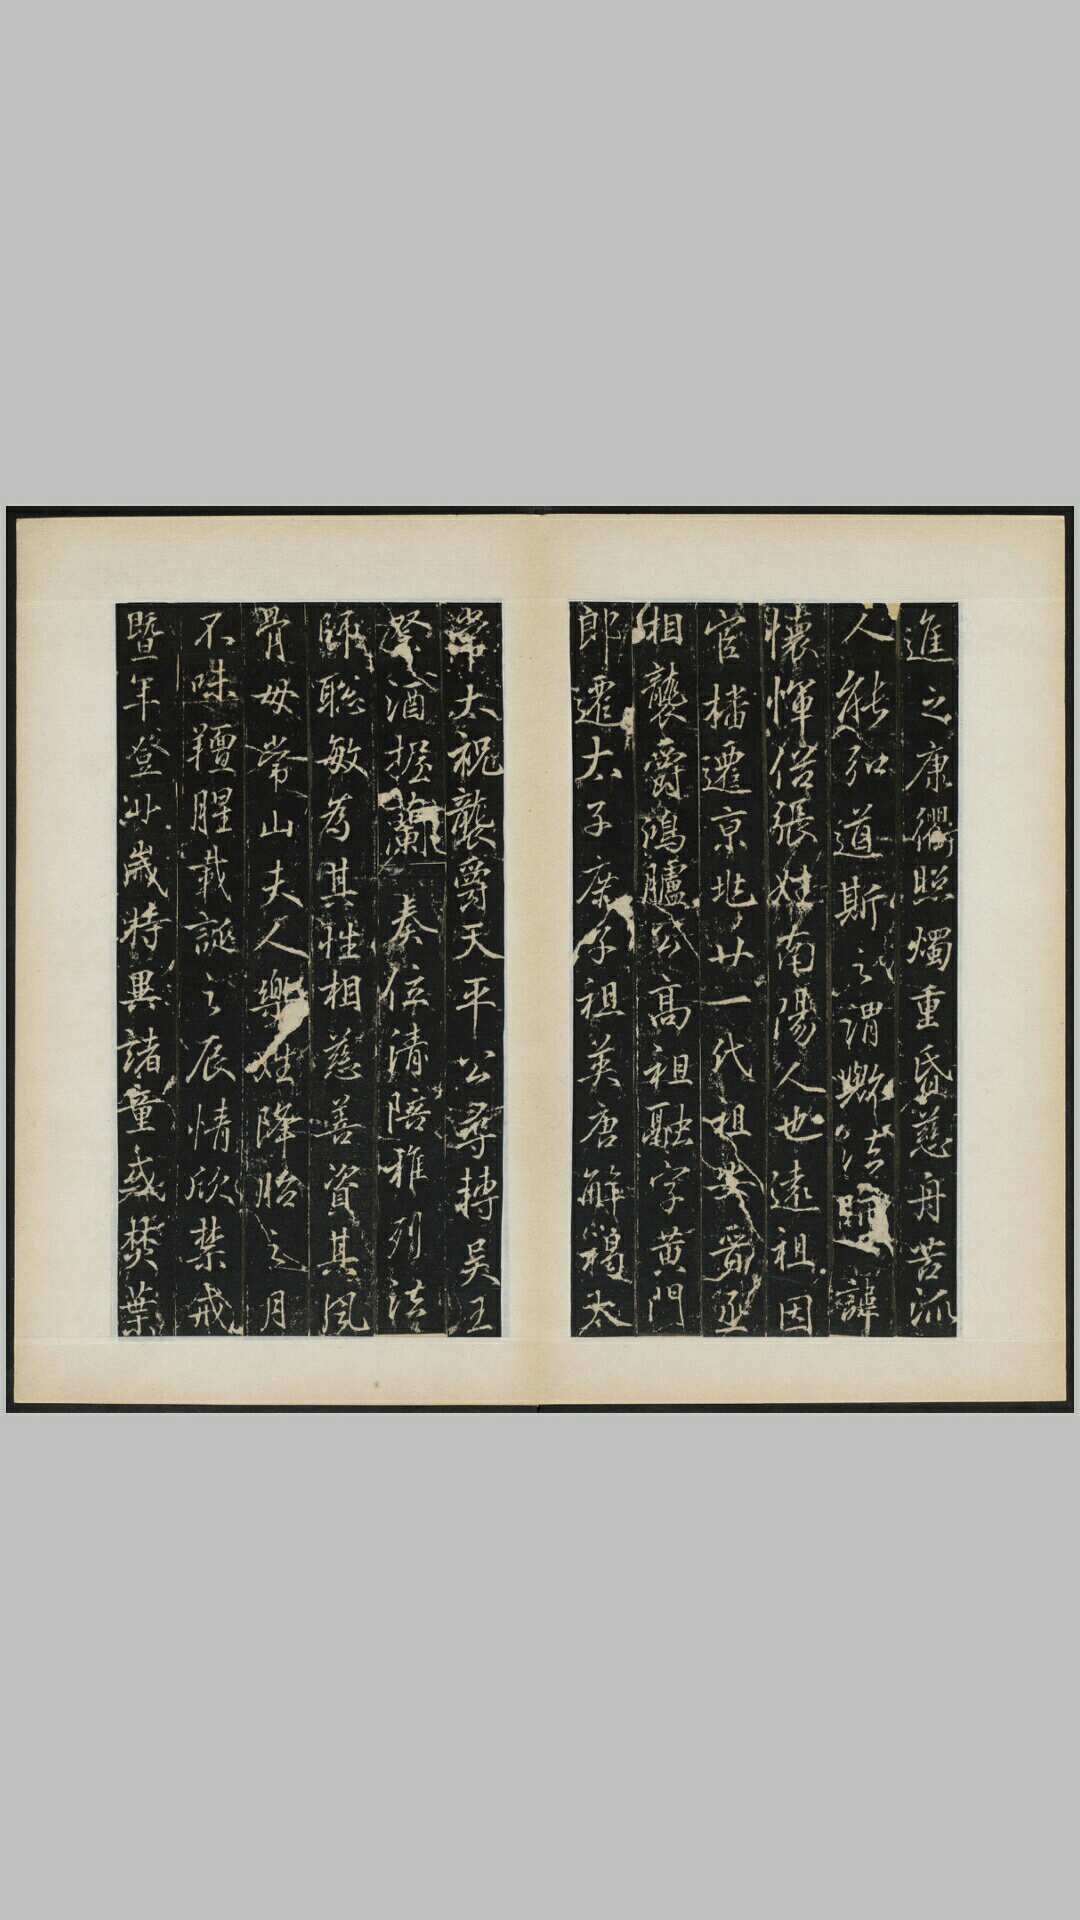 進之康衢照燭重昏慈舟苦流
人能弘道斯之謂歟法師諱
懷惲俗張姓南陽人也遠祖因
官播遷京兆廿一代祖安晉丞
相襲爵鴻臚公高祖融字黄門
郎遷太子庶子祖英唐解褐太
常太祝襲爵天平公尋轉吳王
祭酒握蘭奏位清陪雅列法
師聡敏為其性相慈善資其風
骨母常山夫人樂姓降胎之月
不味羶腥載誕之辰情欣禁戒
暨年登卝歲特異諸童或焚葉